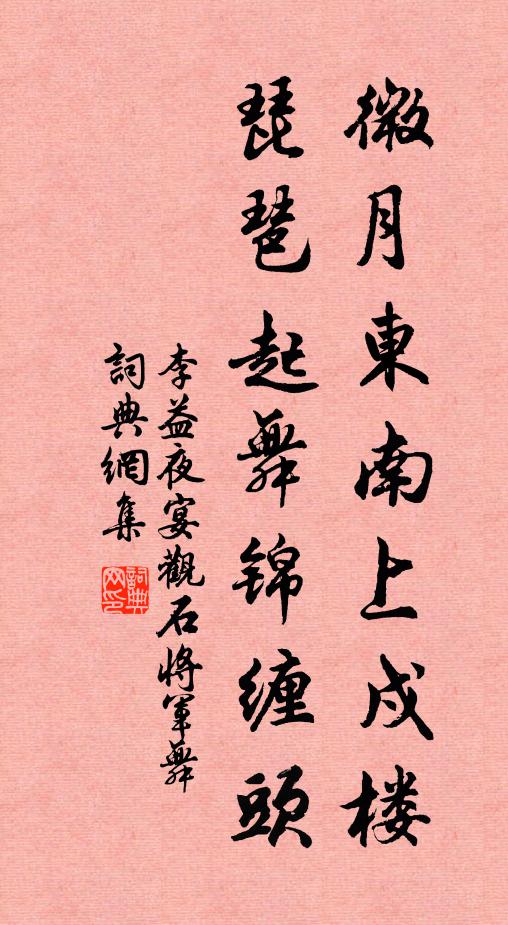 微月東南上戍楼
琵琶起舞锦缠頭
李益夜宴觀石將軍舞
詞典網集
詞典网印